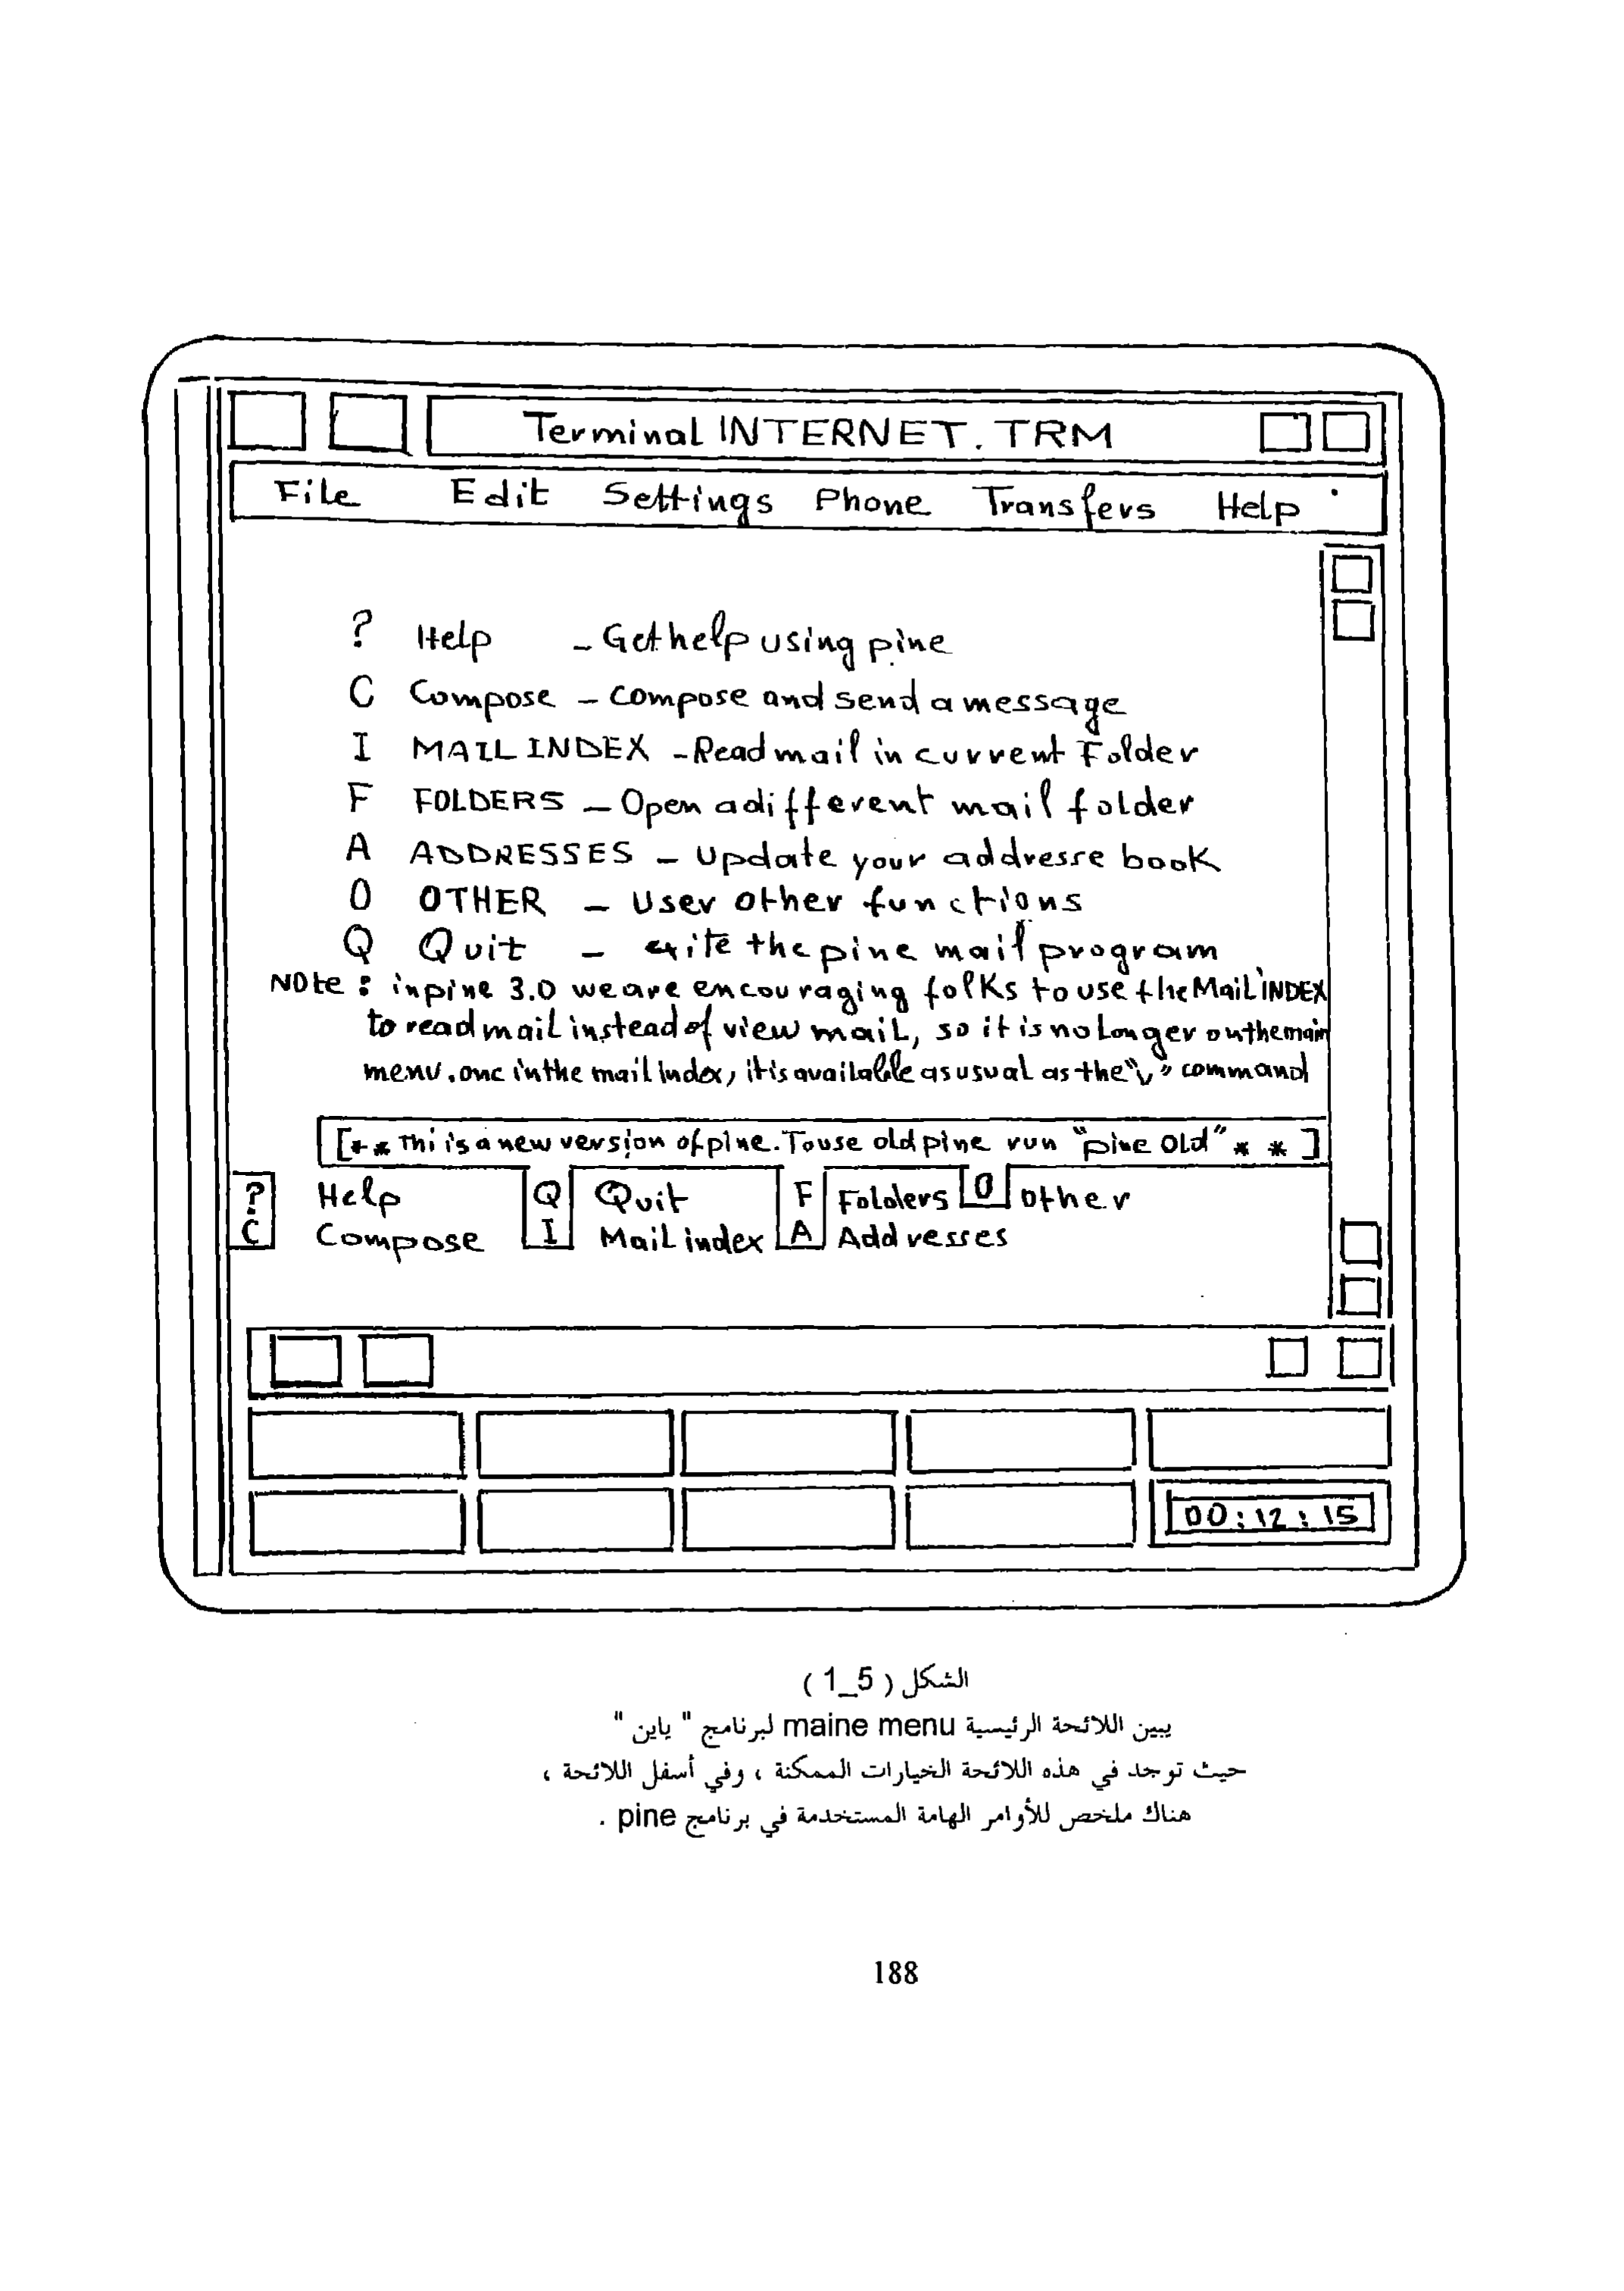 Terminal INTERNET.TRM
File Edit Settings Phone Transfers Help
? Help - Get help using pine
C Compose - compose and send a message
I MAIL INDEX - Read mail in current Folder
F FOLDERS - Open a different mail folder
A ADDRESSES - Update your addresse book
O OTHER - User other functions
Q Quit - exite the pine mail program
NOte : in pine 3.0 we are encouraging folks to use the Mail INDEX
to read mail instead of view mail, so it is no Longer on the main
menu. onc in the mail Index, it is available as usual as the "V" command
[** thi is a new version of pine. To use old pine run "pine old" * * ]
? Help Q Quit F Folders O other
C Compose I Mail index A Addresses
00:12:15
الشكل ( 5_1 )
يبين اللائحة الرئيسية maine menu لبرنامج " ياين "
حيث توجد في هذه اللائحة الخيارات الممكنة ، وفي أسفل اللائحة ،
هناك ملخص للأوامر الهامة المستخدمة في برنامج pine .
188